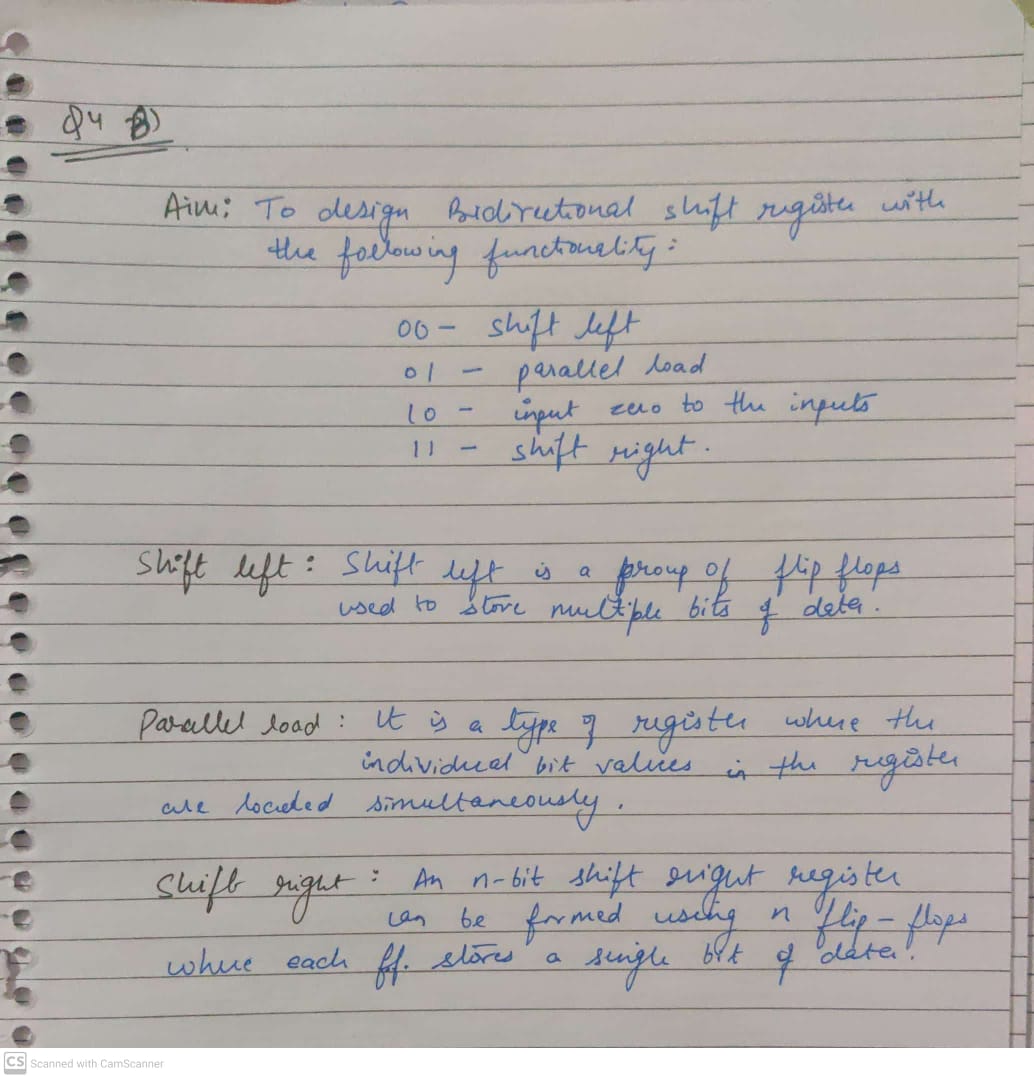 Q4 B)
Aim: To design Bidirectional shift register with
the following functionality:
00 - shift left
01 - parallel load
10 - input zero to the inputs
11 - shift right.
Shift left: Shift left is a group of flip flops
used to store multiple bits of data.
Parallel load: It is a type of register where the
individual bit values in the register
are loaded simultaneously.
Shift right: An n-bit shift right register
can be formed using n flip-flops
where each ff. stores a single bit of data.
CS Scanned with CamScanner